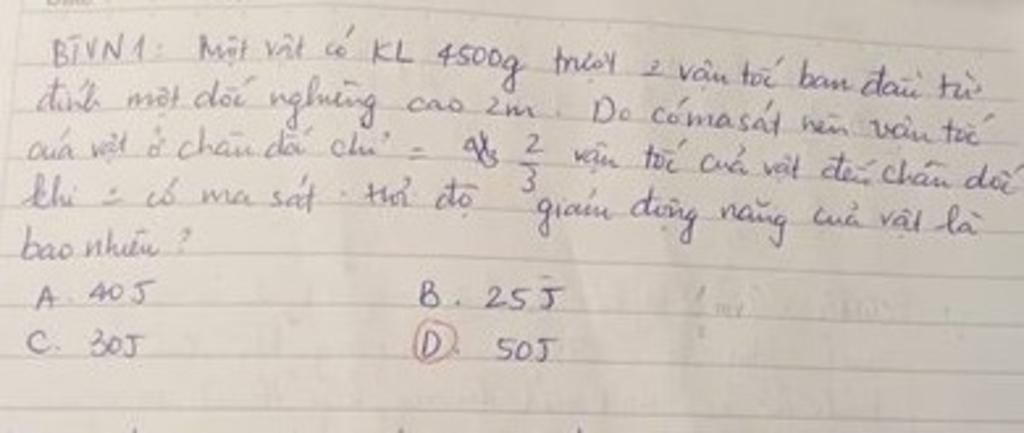 BTVN1: Một vật có KL 4500g trượt vận tốc ban đầu từ
đỉnh một dốc nghiêng cao 2m. Do có ma sát nên vận tốc
của vật ở chân dốc chỉ = 2/3 vận tốc của vật đến chân dốc
khi có ma sát. thì độ giảm động năng của vật là
bao nhiêu?
A. 40J B. 25J
C. 30J D. 50J